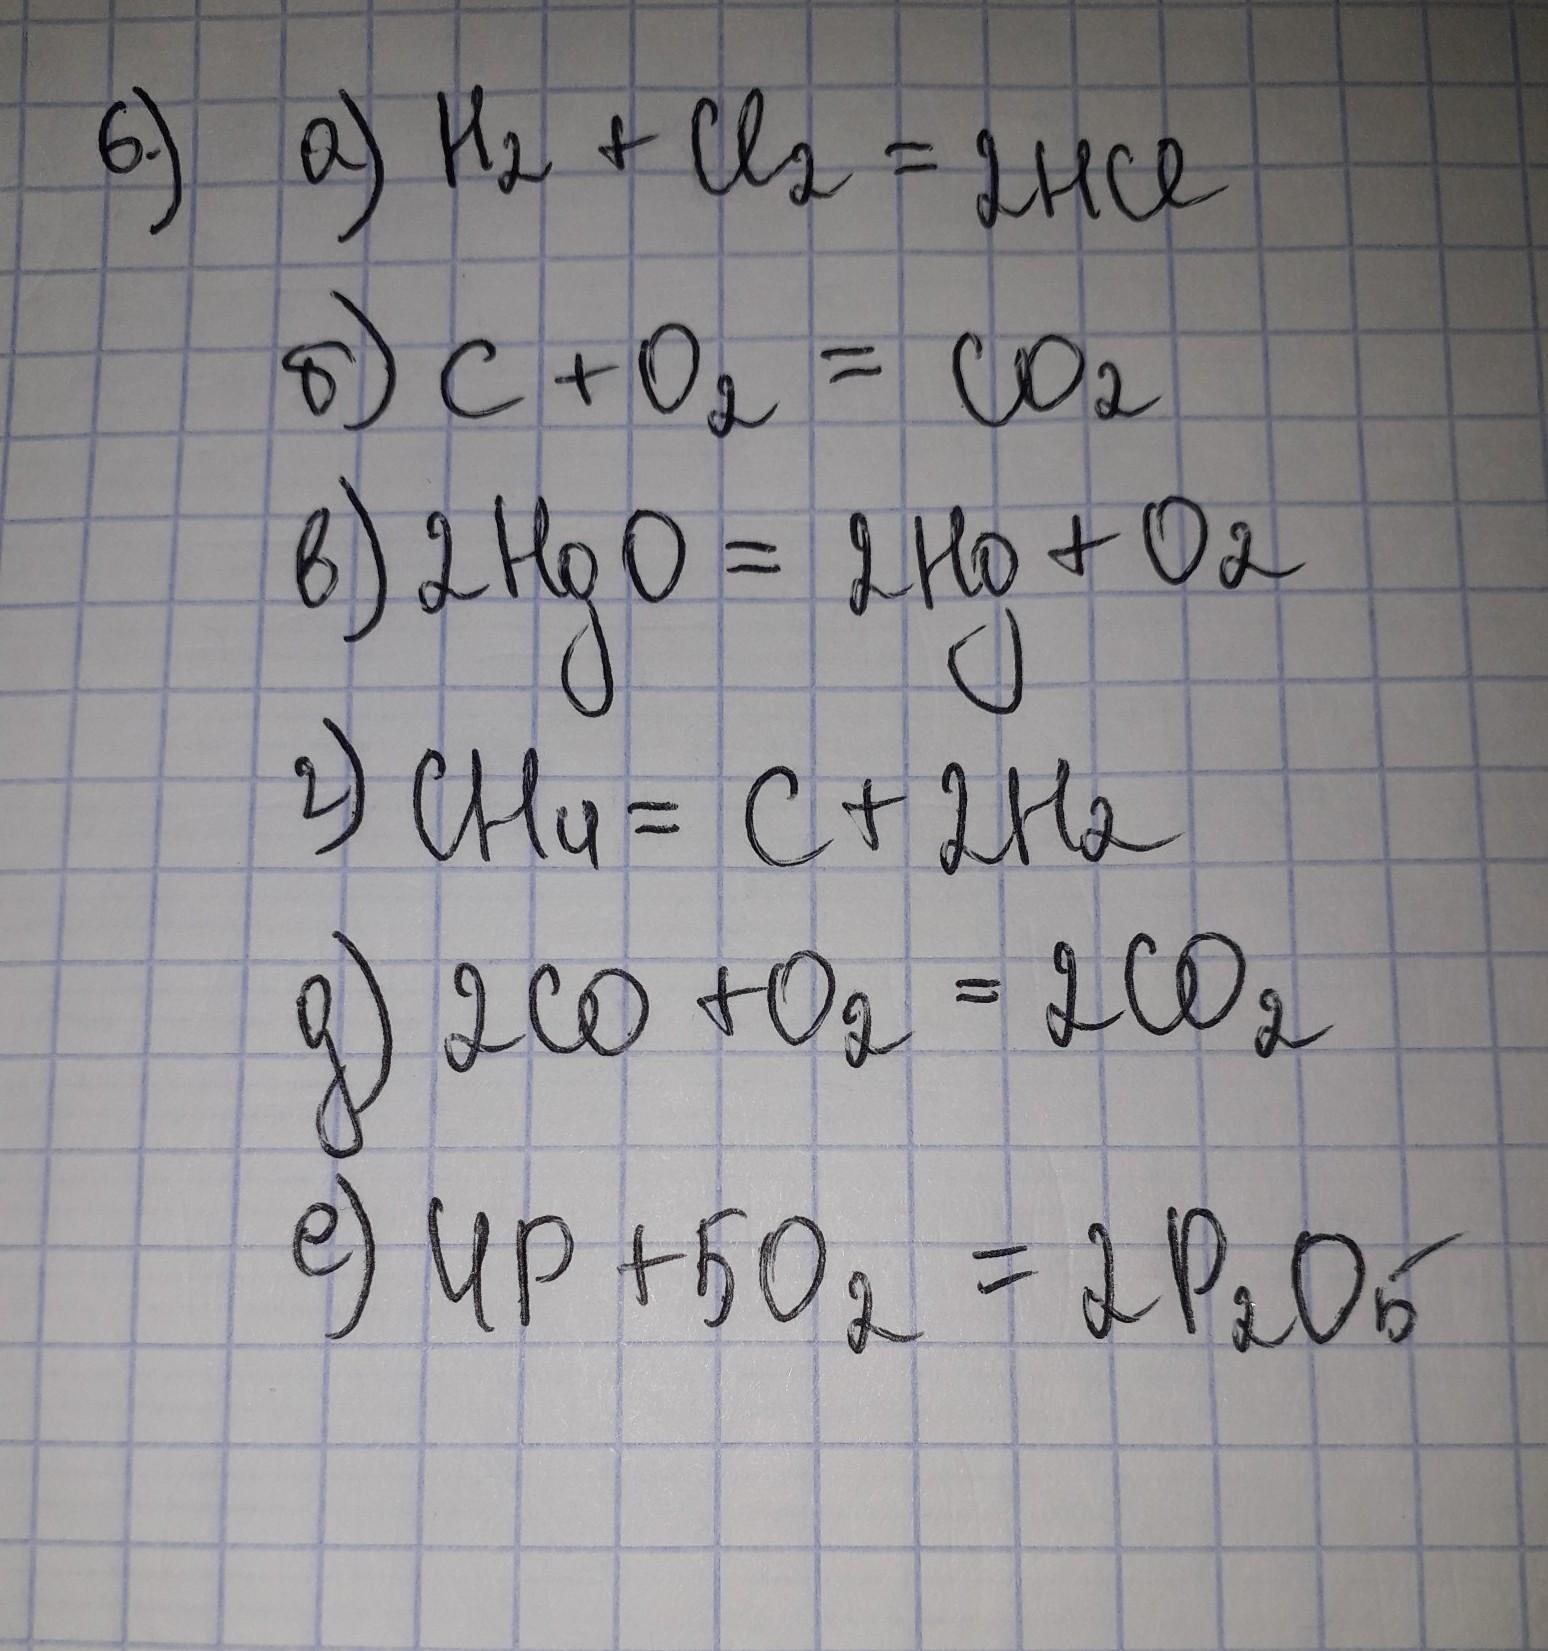 6.) а) H₂ + Cl₂ = 2HCl
б) C + O₂ = CO₂
в) 2HgO = 2Hg + O₂
г) CH₄ = C + 2H₂
д) 2CO + O₂ = 2CO₂
е) 4P + 5O₂ = 2P₂O₅